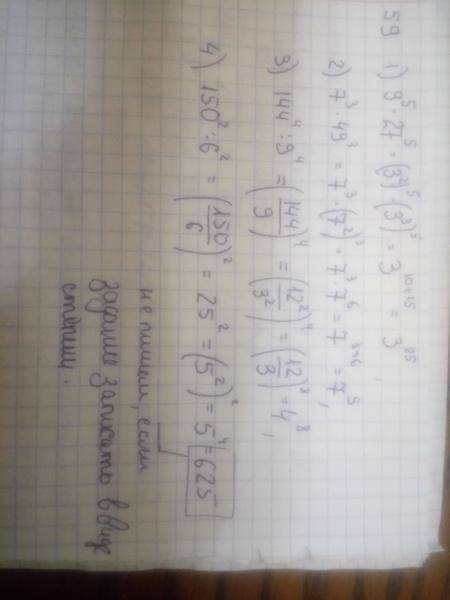 59 1) 9⁵·27⁵ = (3²)⁵·(3³)⁵ = 3¹⁰⁺¹⁵ = 3²⁵,
2) 7³·49³ = 7³·(7²)³ = 7³·7⁶ = 7³⁺⁶ = 7⁵,
3) 144⁴:9⁴ = (144/9)⁴ = (12²/3²)⁴ = (12/3)⁸ = 4⁸,
4) 150²:6² = (150/6)² = 25² = (5²)² = 5⁴ = 625
не пишем, если
задание записать в виде
степени.